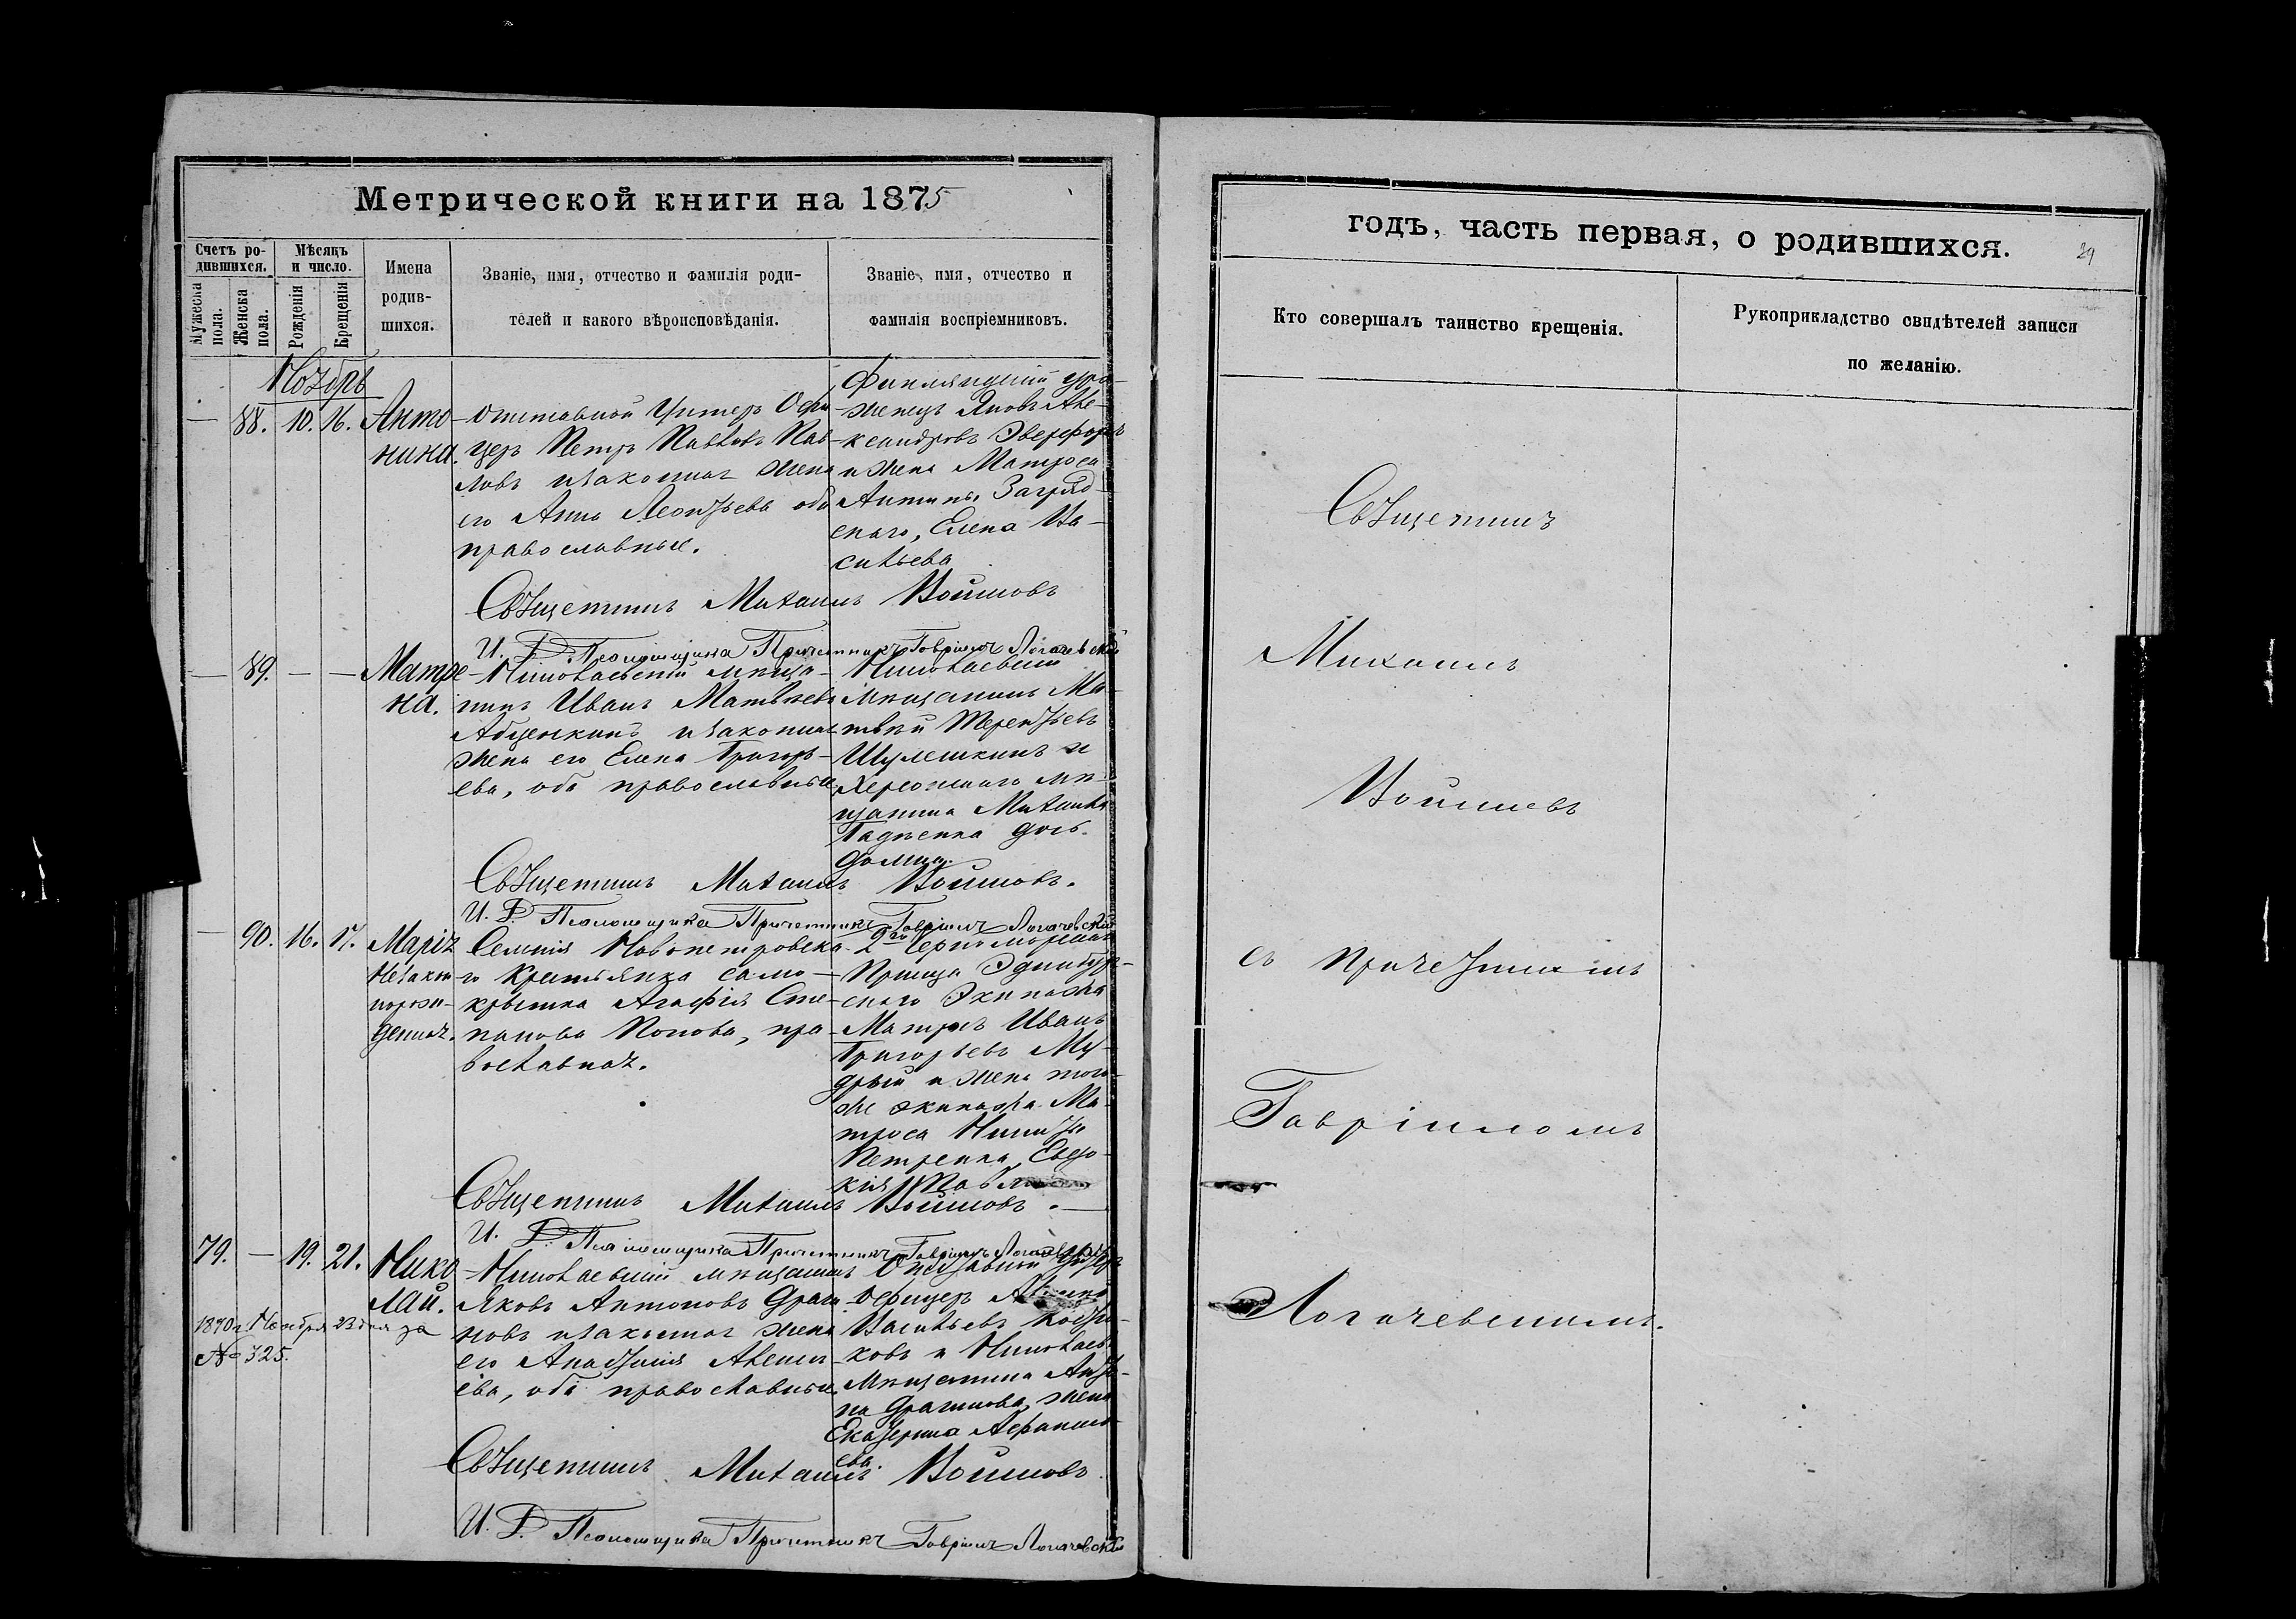 Метрической книги на 1875
Счетъ ро-
дившихся.
Мужеска пола.
Женска пола.
Мѣсяцъ
и число.
Рожденія
Крещенія
Имена
родив-
шихся.
Званіе, имя, отчество и фамилія роди-
телей и какого вѣроисповѣданія.
Званіе, имя, отчество и
фамилія воспріемниковъ.
Ноябрь
— 88. 10. 16.
Анто-
нина.
Отставной Унтеръ Офи-
церъ Петръ Павловъ Пав-
ловъ и законная жена
его Анна Леонтьева оба
православные.
Финляндскій уро-
женецъ Яковъ Але-
ксандровъ
и жена Матроса
Антипы
Елена Ва-
сильева
Священникъ Михаилъ Войновъ
И. Д. Псаломщика Причетникъ Гавріилъ Логачевскій
— 89. — —
Матре-
на.
Николаевскій мѣща-
нинъ Иванъ Матвѣевъ
и законная
жена его Елена Григорь-
ева, оба православные
Николаевскій
мѣщанинъ Ма-
твѣй Терентьевъ
Шулешкинъ и
Херсонскаго мѣ-
щанина Михаила
дочь
Домна.
Священникъ Михаилъ Войновъ.
И. Д. Псаломщика Причетникъ Гавріилъ Логачевскій
— 90. 16. 17.
Марія
незакон-
норож-
денная.
Селенія Новопетровска-
го крестьянка само-
крытка Агафія Сте-
панова Попова, пра-
вославная.
2го Черноморскаго
Принца Эдинбург-
скаго Экипажа
Матросъ Иванъ
Григорьевъ Му-
дрый и жена того-
же экипажа Ма-
троса Никиты
Петренка, Евдо-
кія
Священникъ Михаилъ Войновъ.
И. Д. Псаломщика Причетникъ Гавріилъ Логачевскій
79. — 19. 21.
Нико-
лай.
1890 г. Ноября 23 дня за
№ 325.
Николаевскій мѣщанинъ
Яковъ Антоновъ Драгу-
новъ и законная жена
его Анастасія Алексѣ-
ева, оба православные
Отставной Унтеръ
Офицеръ
Васильевъ
ковъ и Николаев.
Мѣщанина Анто-
на Драгунова жена
Екатерина Афанась-
ева.
Священникъ Михаилъ Войновъ
И. Д. Псаломщика Причетникъ Гавріилъ Логачевскій
годъ, часть первая, о родившихся.
29
Кто совершалъ таинство крещенія.
Рукоприкладство свидѣтелей записи
по желанію.
Священникъ
Михаилъ
Войновъ
съ причетникомъ
Гавріиломъ
Логачевскимъ.